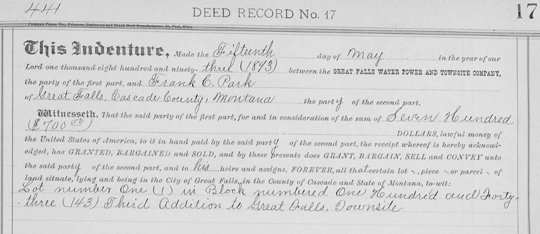 441 DEED RECORD No. 17 17
This Indenture, Made the Fifteenth day of May in the year of our
Lord one thousand eight hundred and ninety-three (1893) between the GREAT FALLS WATER POWER AND TOWNSITE COMPANY,
the party of the first part, and Frank C. Park
of Great Falls, Cascade County, Montana the party of the second part.
Witnesseth, That the said party of the first part, for and in consideration of the sum of Seven Hundred
($700.00) DOLLARS, lawful money of
the United States of America, to it in hand paid by the said party of the second part, the receipt whereof is hereby acknowl-
edged, has GRANTED, BARGAINED and SOLD, and by these presents does GRANT, BARGAIN, SELL and CONVEY unto
the said party of the second part, and to his heirs and assigns, FOREVER, all that certain lot, piece or parcel of
land situate, lying and being in the City of Great Falls, in the County of Cascade and State of Montana, to-wit:
Lot number One (1) in Block numbered One Hundred and Forty-
three (143) Third Addition to Great Falls, Townsite.